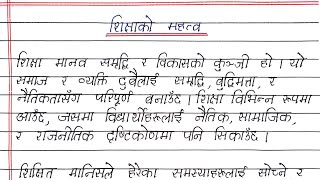 शिक्षाको महत्व
शिक्षा मानव समृद्धि र विकासको कुञ्जी हो । यो
समाज र व्यक्ति दुबैलाई समृद्धि, बुद्धिमता, र
नैतिकतासँग परिपूर्ण बनाउँछ । शिक्षा विभिन्न रूपमा
आउँछ, जसमा विद्यार्थीहरूलाई नैतिक, सामाजिक,
र राजनीतिक दृष्टिकोणमा पनि सिकाउँछ ।
शिक्षित मानिसले हरेका समस्याहरूलाई सोच्ने र